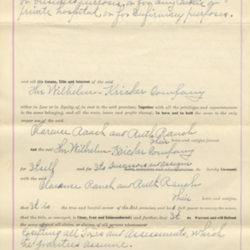 or business purposes, or for any
private hospital or for infirmary purposes.
and all the Estate, Title and Interest of the said
The Wilhelm-Kricker Company
either in Law or in Equity of, in and to the said premises; Together with all the privileges and appurtenances
to the same belonging, and all the rents, issues and profits thereof; To have and to hold the same to the only
proper use of the said
Clarence Raush and Ruth Raush
their heirs and assigns forever
And the said
The Wilhelm-Kricker Company
for itself and for its successors and assigns do hereby Covenant
with the said
Clarence Raush and Ruth Raush
their heirs and assigns,
that it is the true and lawful owner of the said premises, and has full power to convey the same;
that the title, so conveyed, is Clear, Free and Unincumbered; and further, That it will Warrant and will Defend
the same against all claim, or claims, of all persons whomsoever;
Excepting all taxes and assessments, which
the grantees assume.